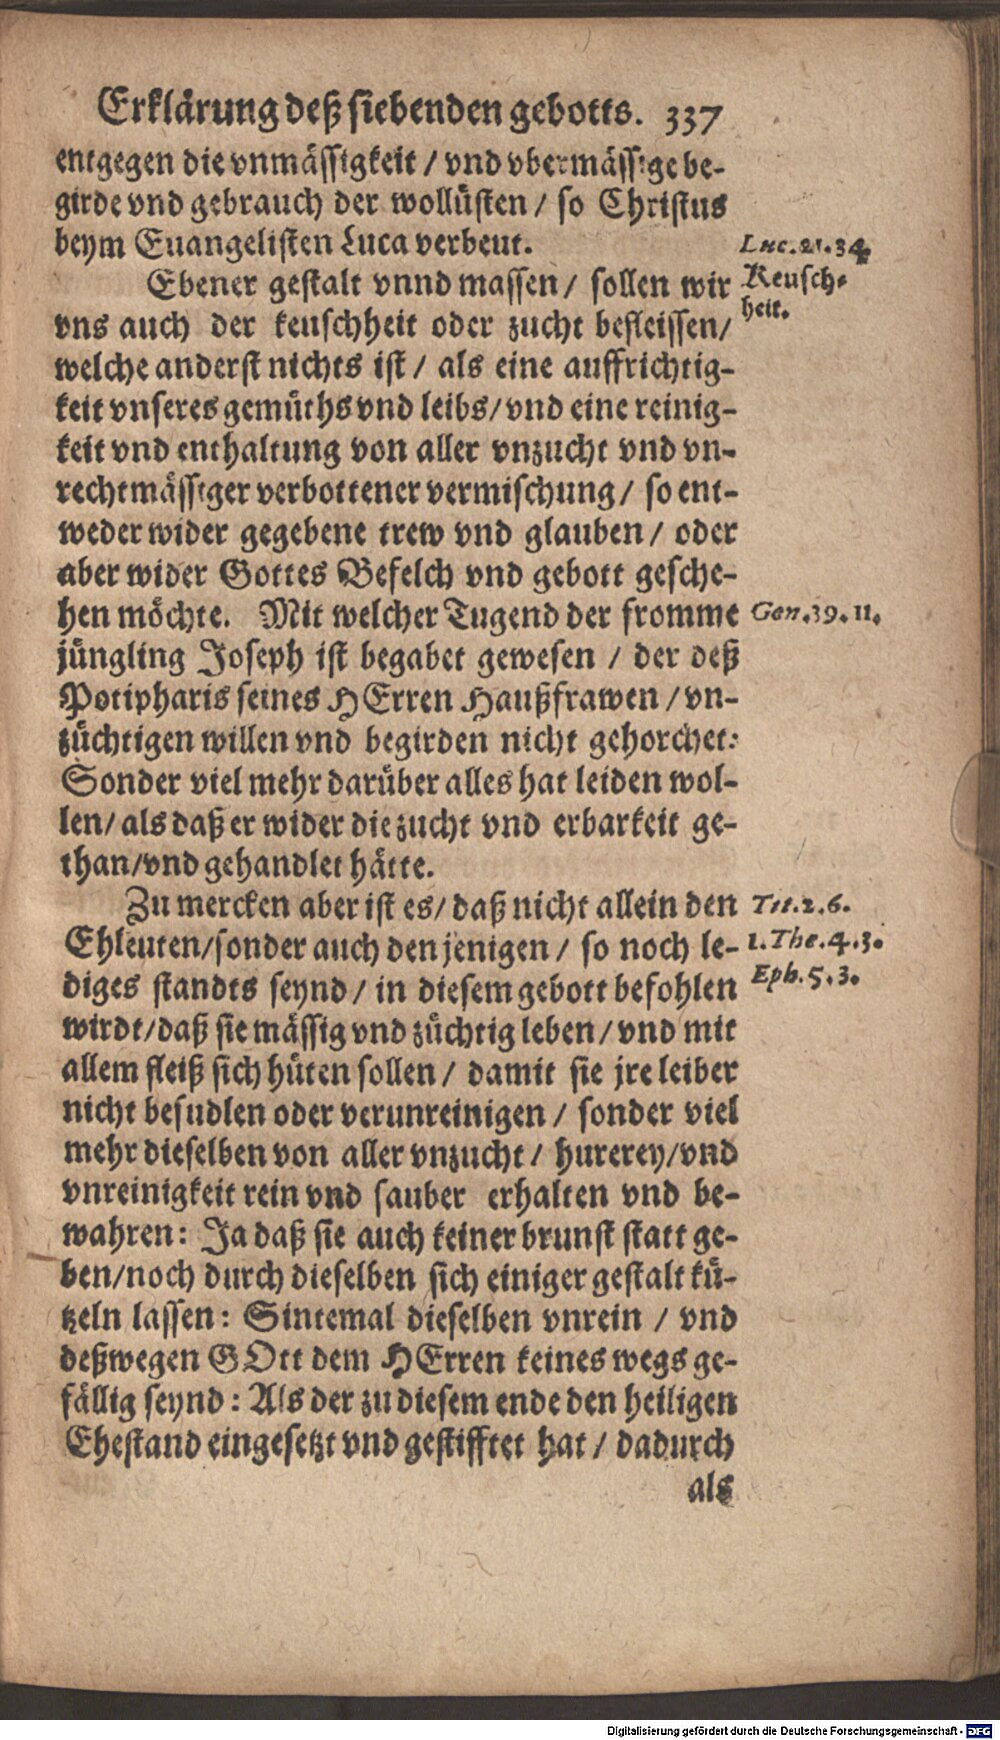 Erklärung deß siebenden gebotts. 337
entgegen die vnmässigkeit / vnd vbermässige be-
girde vnd gebrauch der wollüsten / so Christus
beym Euangelisten Luca verbeut.
Luc. 21. 34.
Ebener gestalt vnnd massen / sollen wir
Keusch-
heit.
vns auch der keuschheit oder zucht befleissen /
welche anderst nichts ist / als eine auffrichtig-
keit vnseres gemüths vnd leibs / vnd eine reinig-
keit vnd enthaltung von aller vnzucht vnd vn-
rechtmässiger verbottener vermischung / so ent-
weder wider gegebene trew vnd glauben / oder
aber wider Gottes Befelch vnd gebott gesche-
hen möchte. Mit welcher Tugend der fromme
Gen. 39. 11.
jüngling Joseph ist begabet gewesen / der deß
Potipharis seines HErren Haußfrawen / vn-
züchtigen willen vnd begirden nicht gehorchet:
Sonder viel mehr darüber alles hat leiden wol-
len / als daß er wider die zucht vnd erbarkeit ge-
than / vnd gehandlet hätte.
Zu mercken aber ist es / daß nicht allein den
Tit. 2. 6.
Ehleuten / sonder auch denjenigen / so noch le-
1. The. 4. 3.
diges standts seynd / in diesem gebott befohlen
Eph. 5. 3.
wirdt / daß sie mässig vnd züchtig leben / vnd mit
allem fleiß sich hüten sollen / damit sie jre leiber
nicht besudlen oder verunreinigen / sonder viel
mehr dieselben von aller vnzucht / hurerey / vnd
vnreinigkeit rein vnd sauber erhalten vnd be-
wahren: Ja daß sie auch keiner brunst statt ge-
ben / noch durch dieselben sich einiger gestalt kü-
tzeln lassen: Sintemal dieselben vnrein / vnd
deßwegen GOtt dem HErren keines wegs ge-
fällig seynd: Als der zu diesem ende den heiligen
Ehestand eingesetzt vnd gestifftet hat / dadurch
als
Digitalisierung gefördert durch die Deutsche Forschungsgemeinschaft - DFG